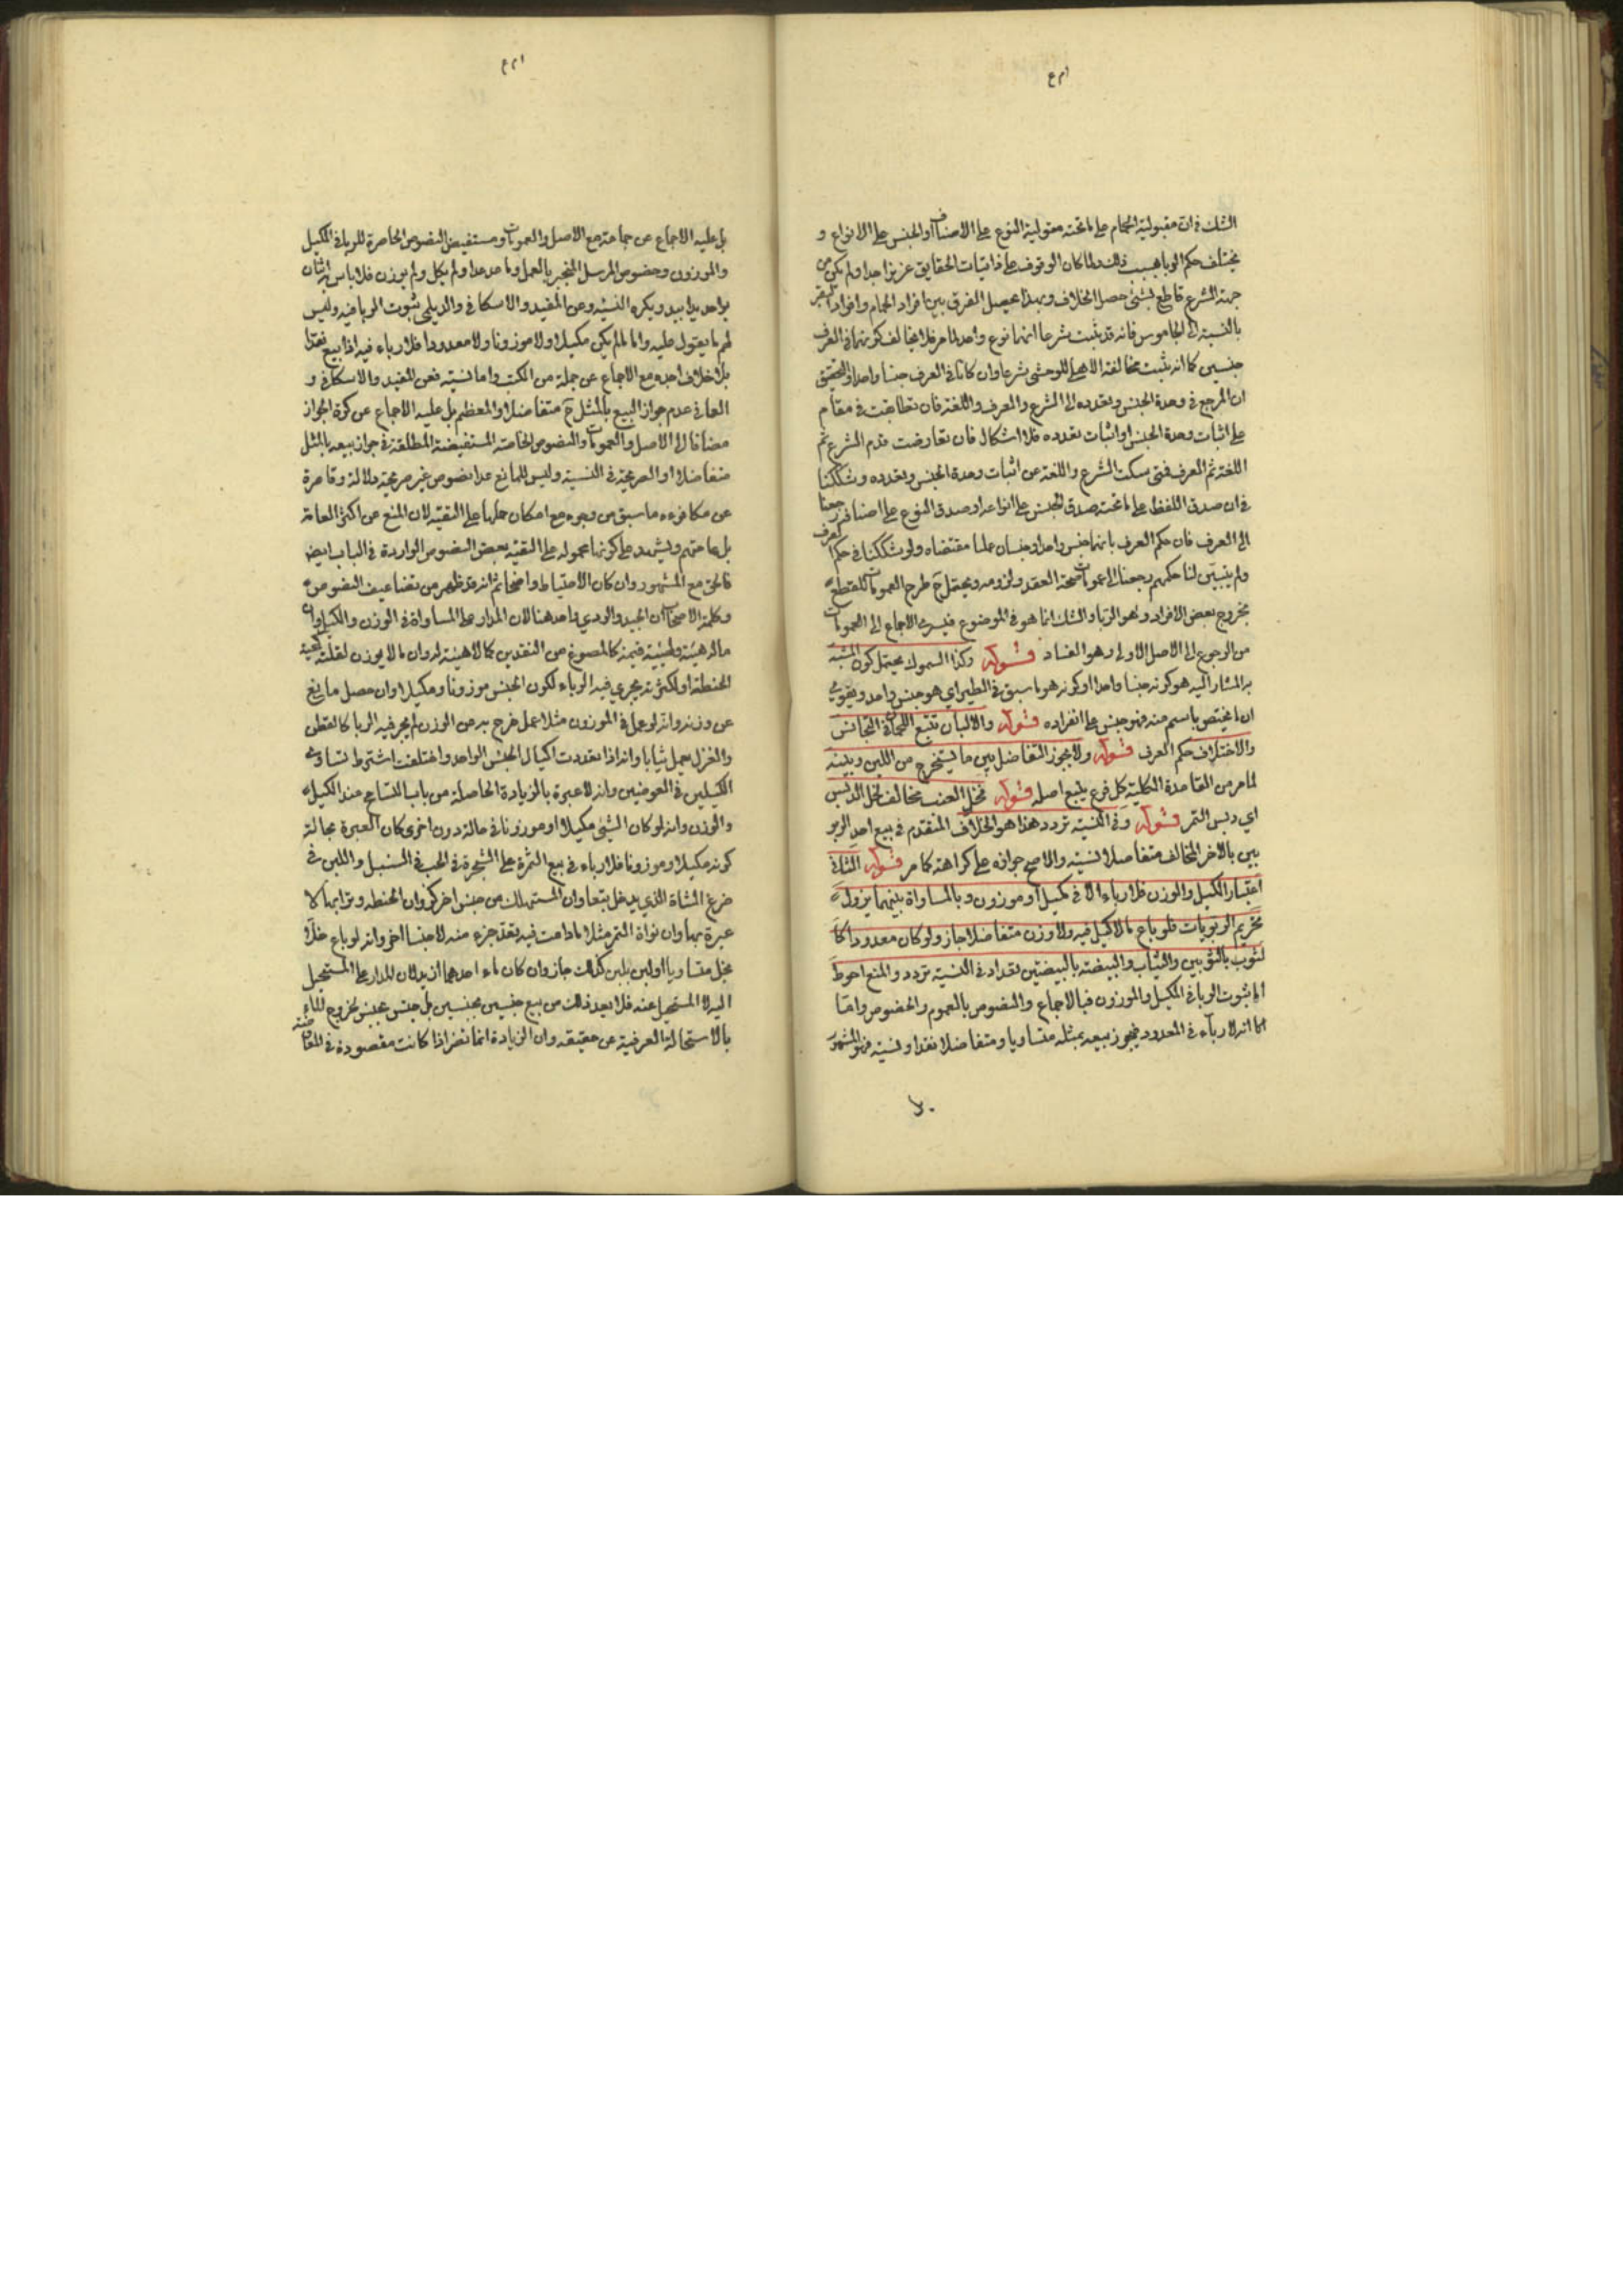 الشك في ان مقبولية الحمام على ما تحته مقولية النوع على الاصناف او الجنس على الانواع و
يختلف حكم الربا بسبب ذلك ولما كان الوقوف على ذاتيات الحقايق عزيزا جدا ولم يكن من
جهة الشرع قاطع بشئ حصل الخلاف وبهذا يحصل الفرق بين افراد الحمام وافراد البقر
بالنسبة الى الجاموس فانه قد ثبت شرعا انهما نوع واحد لما مر فلا يخالف كونهما في العرف
جنسين كما انه ثبت مخالفة الاهلي للوحشي شرعا وان كانا في العرف جنسا واحدا والتحقيق
ان المرجع في وحدة الجنس وتعدده الى الشرع والعرف واللغة فان تطابقت في مقام
على اثبات وحدة الجنس او اثبات تعدده فلا اشكال فان تعارضت قدم الشرع ثم
اللغة ثم العرف فمتى سكت الشرع واللغة عن اثبات وحدة الجنس وتعدده وشككنا
في ان صدق اللفظ على ما تحته صدق الجنس على انواعه او صدق النوع على اصنافه رجعنا
الى العرف فان حكم العرف بانهما جنس واحد او جنسان عملنا بمقتضاه ولو شككنا في حكم العرف
ولم يتبين لنا حكمهم رجعنا الى عمومات صحة العقد ولزومه ويحتمل ح طرح العمومات للقطع
بخروج بعض الافراد وهو الربا والشك انما هو في الموضوع فيسري الاجماع الى العمومات
من الرجوع الى الاصل الاولي وهو الفساد قوله وكذا السموك يحتمل كون المشبه
به المشار اليه هو كونه جنسا واحدا او كونه هو ما سبق في الطير اي هو جنس واحد ويقوى
ان ما يختص باسم منه فهو جنس على انفراده قوله والالبان تتبع اللحمان في التجانس
والاختلاف حكم العرف قوله ولا يجوز التفاضل بين ما يستخرج من اللبن وبينه
لما مر من القاعدة الكلية كل فرع يتبع اصله قوله فخل العنب مخالف لخل الدبس
اي دبس التمر قوله وفي النسية تردد هذا هو الخلاف المتقدم في بيع احد الربو
بين بالاخر المخالف متفاضلا نسية والاصح جوازه على كراهة كما مر قوله الثاني
اعتبار الكيل والوزن فلا رباء الا في مكيل او موزون وبالمساواة بينهما يزول
تحريم الربويات فلو باع ما لا كيل فيه ولا وزن متفاضلا جاز ولو كان معدودا كا
لثوب بالثوبين والثياب والبيضة بالبيضتين نقدا وفي النسية تردد والمنع احوط
اما ثبوت الربا في المكيل والموزون فبالاجماع والنصوص بالعموم والخصوص واما
انه لا رباء في المعدود فيجوز بيعه بمثله متساويا ومتفاضلا نقدا ونسية فهو المشهور
بل عليه الاجماع عن جماعة مع الاصل والعمومات ومستفيض النصوص الحاصرة للربا في المكيل
والموزون وخصوص المرسل المنجبر بالعمل وما عد عدا ولم يكل ولم يوزن فلا باس به اثنان
بواحد يدا بيد ويكره النسية وعن المفيد والاسكافي والديلمي ثبوت الربا فيه وليس
لهم ما يعول عليه واما ما لم يكن مكيلا ولا موزونا ولا معدودا فلا رباء فيه اذا بيع نقدا
بلا خلاف اجده مع الاجماع عن جملة من الكتب واما نسية فعن المفيد والاسكافي و
العماني عدم جواز البيع بالمثل ح متفاضلا والمعظم بل عليه الاجماع عن كرة الجواز
مضافا الى الاصل والعمومات والنصوص الخاصة المستفيضة المطلقة في جواز بيعه بالمثل
متفاضلا او الصريحة في النسية وليس للمانع عدا نصوص غير صريحة دلالة وقاصرة
عن مكافوءة ما سبق من وجوه مع امكان حملها على التقية لان المنع عن اكثر العامة
بل عامتهم ويشهد على كونها محمولة على التقية بعض النصوص الواردة في الباب ايض
فالحق مع المشهور وان كان الاحتياط واضحا ثم انه قد ظهر من تضاعيف النصوص
وكلمة الاصحاب ان الجيد والردي واحد هنا لان المدار على المساواة في الوزن والكيل وان
ماله هيئة وليست قيمة كالمصوغ من النقدين كما لا هيئة له وان ما لا يوزن لقلته كحبة
الحنطة او لكثرته يجري فيه الرباء لكون الجنس موزونا ومكيلا وان حصل مانع
عن وزنه وانه لو عمل في الموزون مثلا عمل خرج به من الوزن لم يجر فيه الربا كالقطن
والغزل يعمل ثيابا وانه اذا تعددت اكيال الجنس الواحد واختلفت اشترط تساوي
الكيلين في العوضين وانه لا عبرة بالزيادة الحاصلة من باب التسامح عند الكيل
والوزن وانه لو كان الشئ مكيلا او موزونا في حالة دون اخرى كان العبرة بحالة
كونه مكيلا وموزونا فلا رباء في بيع الثمرة على الشجرة في الحب في السنبل واللبن في
ضرع الشاة الذي يدخل تبعا وان المستهلك من جنس اخر كزوان الحنطة وترابها لا
عبرة بها وان نواة التمر مثلا ما دامت فيه تعد جزء منه لا جنسا اخر وانه لو باع خلا
بخل متساويا او لبن بلبن كذلك جاز وان كان ماء احدهما ازيد لان المدار على المستحيل
اليه لا المستحيل عنه فلا يعد ذلك من بيع جنسين بجنسين بل جنس بجنس لخروج الماء
بالاستحالة العرفية عن حقيقته وان الزيادة انما تضر اذا كانت مقصودة في المعاوضة